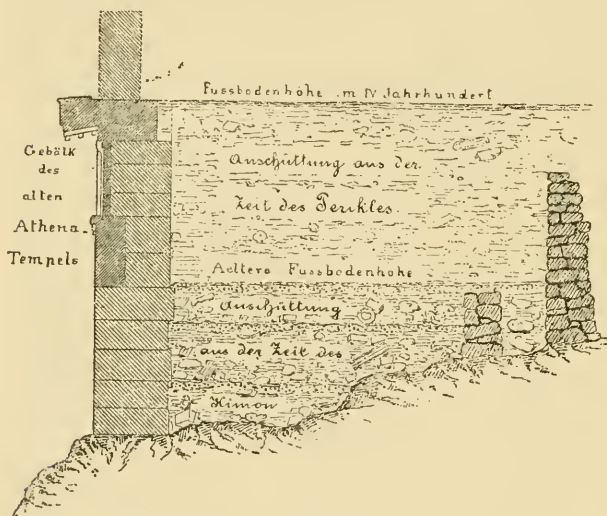 Fussbodenhöhe im IV Jahrhundert
Gebälk
des
alten
Athena-
Tempels
Anschüttung aus der
Zeit des Perikles.
Aeltere Fussbodenhöhe
Anschüttung
aus der Zeit des
Kimon